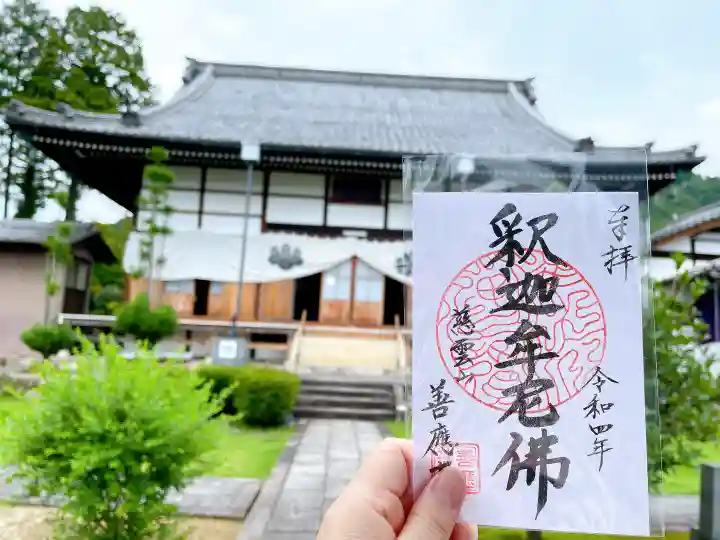 奉拝
令和四年
釈迦牟尼佛
慈雲山
善應